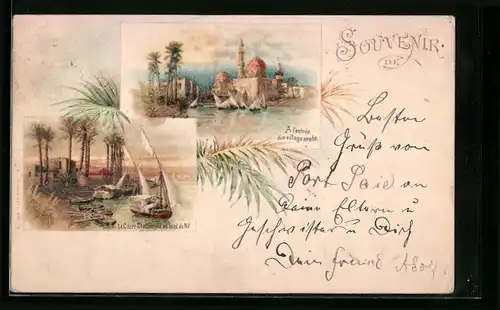 SOUVENIR
DE
A l'entrée
d'un village arabe
Le Caire. Dahabiyés au bord du Nil
Besten
Gruß von
Port Said an
Deine Eltern u
Geschwister u Dich
Dein Freund Adolf